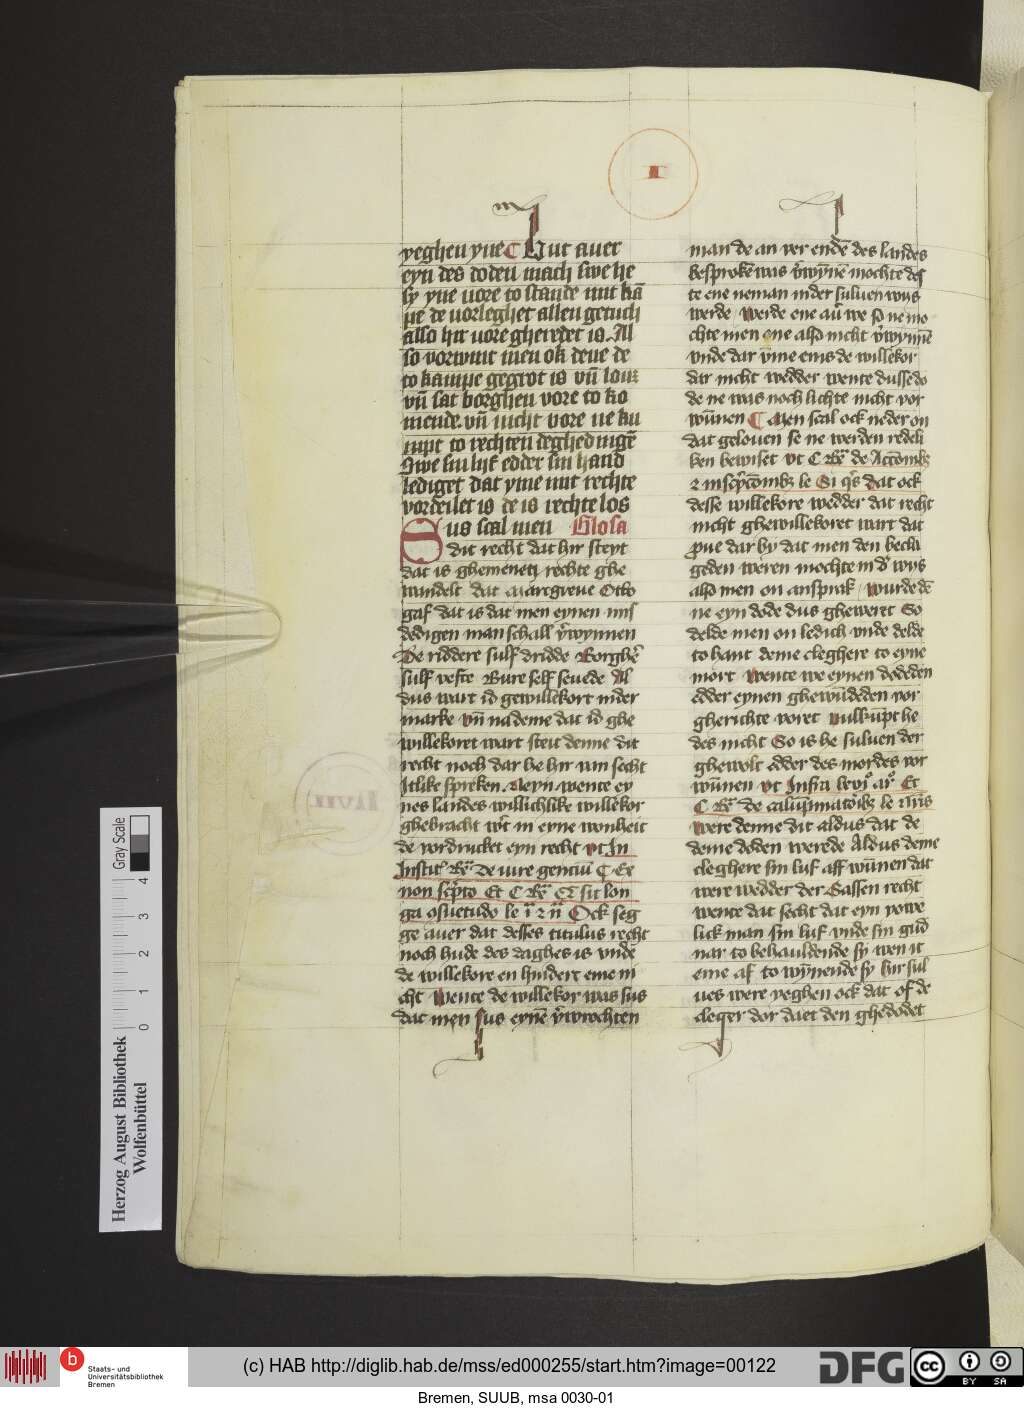 I
yeghen yne Nut auer
eyn des doden mach swe he
sy yne uore to stande mit kā
pe de uorleghet allen getuch
also hir uore gheredet is. Al
so vorwint men ok deue de
to kampe gegrot is vn̄ louz
vn̄ sat borghen vore to ko
mende. vn̄ nicht vore ne ku
mpt to rechten deghedingē
Swe sin lyf edder sin hand
lediget dat yme mit rechte
vordeilet is de is rechtelos
Sus scal men Glosa
dit recht dat hir steyt
dat is ghemeneti rechte ghe
wandelt dat marcgreue Otto
gaf dat is dat men eynen mis
dedigen man schall v̄wynnen
De riddere sulf dridde Borghē
sulf vefte Bure self seuede Al
dus wart id gewillekort in der
marke vn̄ na deme dat id ghe
willekoret wart steit denne dit
recht noch dar he hir um secht
Itlike spreken. Neyn wente ey
nes landes willichlike willekor
ghebracht wert in eyne wonheit
de vordrucket eyn recht vt In
Institut Rr̄ De iure gentiū C Ex
non scp̄to Et C Rr̄ Et sit lon
ga osuetudo le i 2 n Ock seg
ge auer dat desses titulus recht
noch hude des daghes is vnde
de willekore en hindert eme ni
cht Wente de willekor was sus
dat men sus eynē v̄wrochten
man de an ver endē des landes
besprokē was v̄wynnē mochte des
te ene neman in der suluen wys
werde Werde ene aū we so ne mo
chte men ene also nicht v̄wynnē
vnde dar v̄me eins de willekor
dar nicht wedder wente dusse do
de ne was noch lichte nicht vor
wūnen C Men scal ock neder on
dat gelouen se ne werden redeli
ken bewiset vt C Rr̄ de Accōmbz
2 inscp̄cōmbz le Si q̄s dat ock
desse willekore wedder dat recht
nicht ghewillekoret wart dat
proue dar by dat men den becla
geden weren mochte in d̄ wys
also men on ansprak Wurde dē
ne eyn dode dus gheweret So
delde men on ledich vnde delde
to hant deme cleghere to eyne
mort Wente we eynen dodeden
edder eynen ghewūdeden vor
gherichte voret vulkūpt he
des nicht So is he suluen der
ghewolt edder des mordes vor
wūnen vt Infra
C Rr̄ De calūpmatoribz le
Were denne dit aldus dat de
deme doden werede Aldus deme
cleghere sin luf aff wūnen dat
were wedder der Sassen recht
wente dat secht dat eyn yowe
lick man sin luf vnde sin gūd
nar to behauldende sy wen it
eme af to wȳnende sy hir sul
ues were yeghen ock dat of de
cleger dor daet den ghedodet
Gray Scale
4 3 2 1 0
Herzog August Bibliothek
Wolfenbüttel
b
Staats- und
Universitätsbibliothek
Bremen
(c) HAB http://diglib.hab.de/mss/ed000255/start.htm?image=00122
DFG
cc BY SA
Bremen, SUUB, msa 0030-01